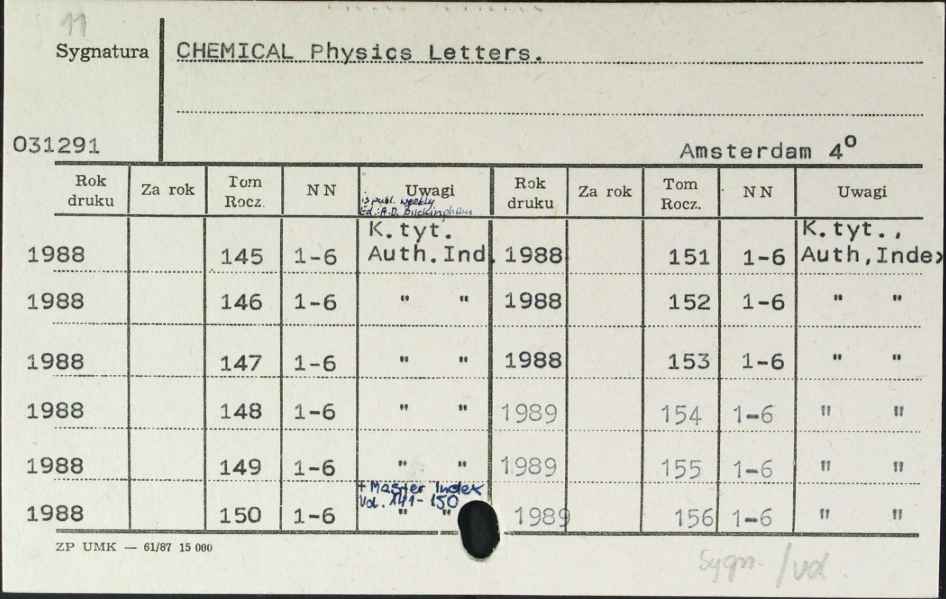 11
Sygnatura CHEMICAL Physics Letters.
031291 Amsterdam 4°
Rok druku Za rok Tom Rocz. NN Uwagi Rok druku Za rok Tom Rocz. NN Uwagi
is publ. weekly
Ed.: A.D. Buckingham
K.tyt. K.tyt.,
1988 145 1-6 Auth.Ind. 1988 151 1-6 Auth,Index
1988 146 1-6 " " 1988 152 1-6 " "
1988 147 1-6 " " 1988 153 1-6 " "
1988 148 1-6 " " 1989 154 1-6 " "
1988 149 1-6 " " 1989 155 1-6 " "
+ Master Index
Vol. 141-150
1988 150 1-6 " " 1989 156 1-6 " "
ZP UMK — 61/87 15 000
Sygn. /vol.